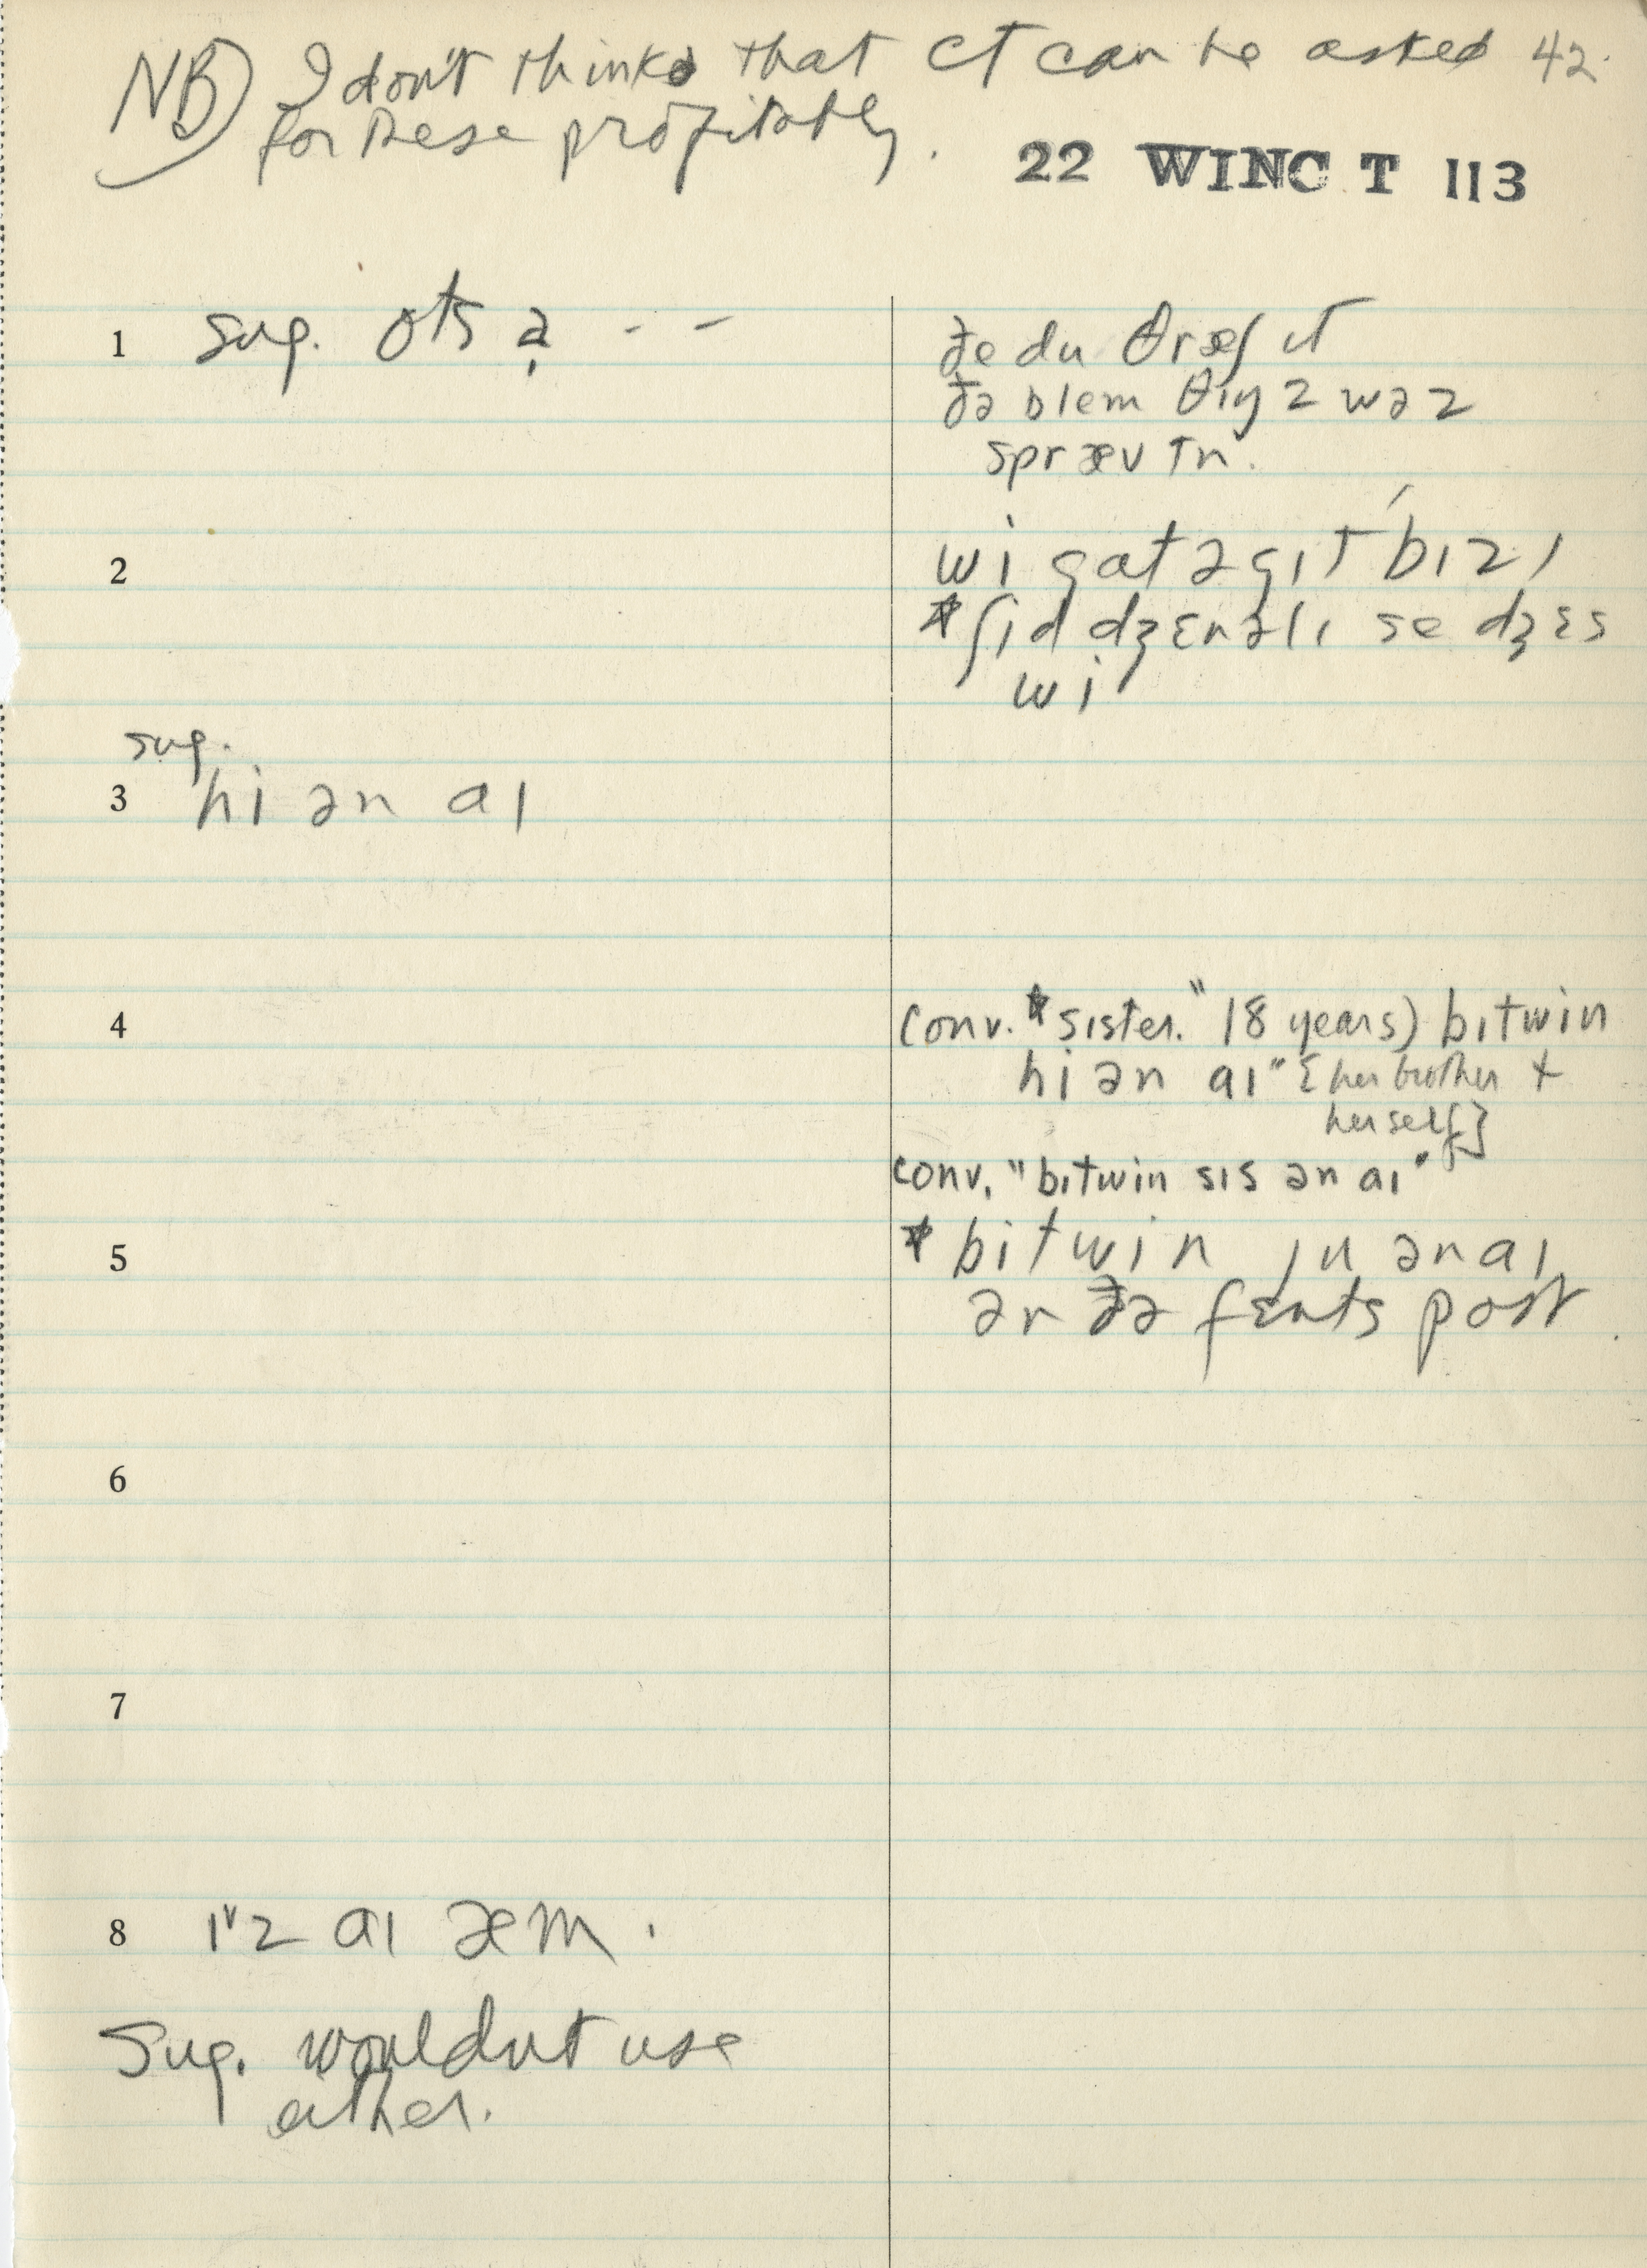 NB) I don't think that CT can be asked 42.
for these profitably.
22 WINC T 113
1 sug. ots ə̣ - -
ðe du θræʃ ɪt
ðə blem θɪŋz wəz
spræʊtn.
2
wi gat ə gɪt bɪzɪ
*ʃɪd dʒɛnəlɪ se dʒɛs
wi
sug.
3 hi ən aɪ
4 conv. *sɪster." 18 years) bɪtwin
hi ən aɪ" [her brother +
herself]
conv. "bɪtwin sɪs ən aɪ"
5 *bitwin ju ən aɪ
ər ðə fɛnts post.
6
7
8 ɪˇz aɪ æm.
Sug. wouldn't use
either.